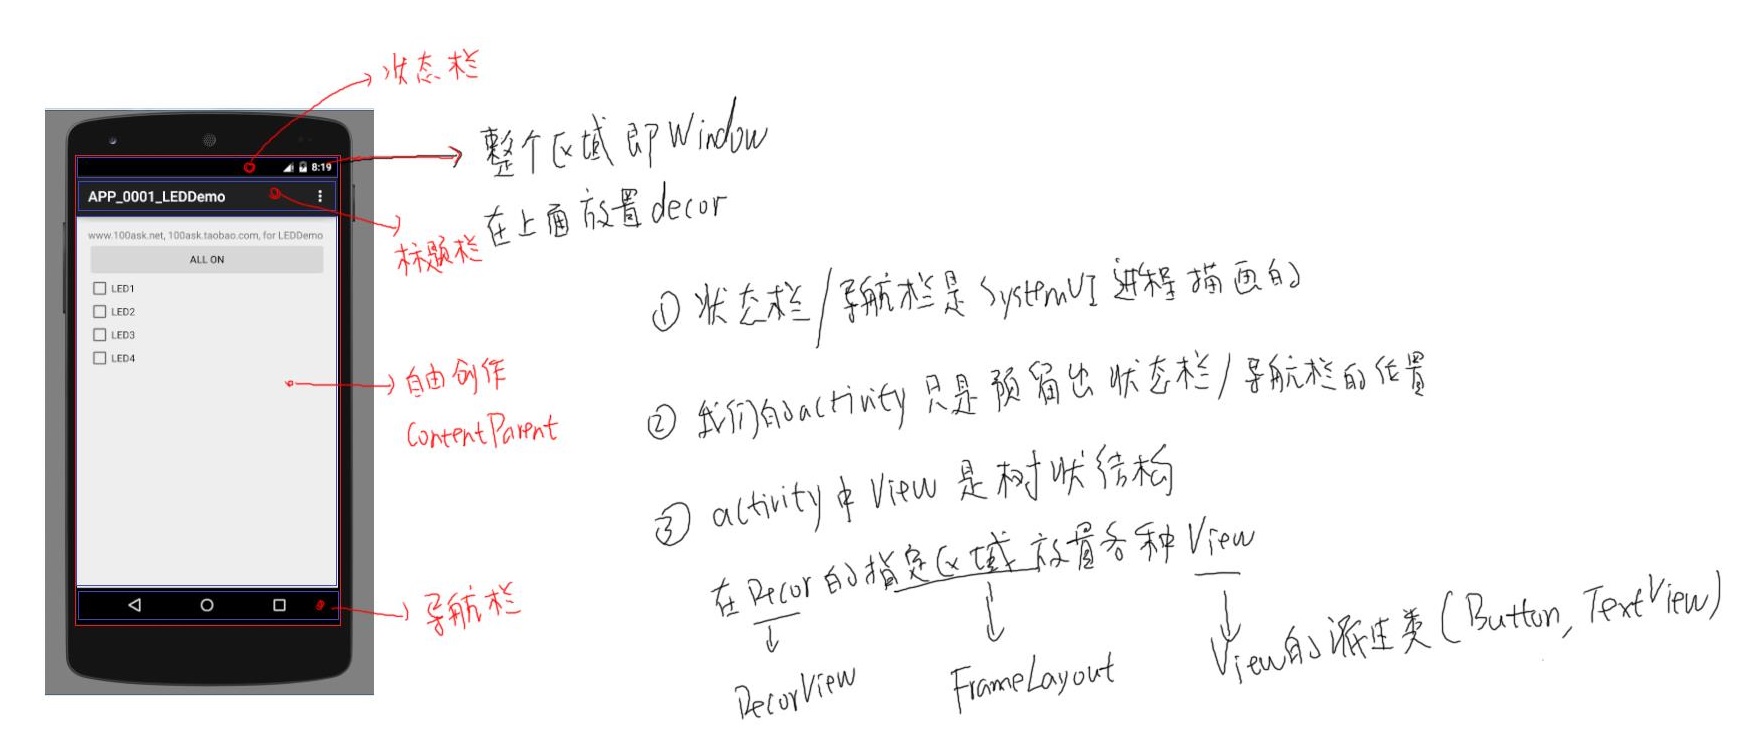 状态栏
整个区域即Window
在上面放置decor
8:19
APP_0001_LEDDemo
标题栏
www.100ask.net, 100ask.taobao.com, for LEDDemo
ALL ON
LED1
LED2
LED3
LED4
自由创作
ContentParent
导航栏
① 状态栏/导航栏是SystemUI进程描画的
② 我们的activity只是预留出状态栏/导航栏的位置
③ activity中View是树状结构
在Decor的指定区域放置各种View
DecorView
FrameLayout
View的派生类(Button, TextView)